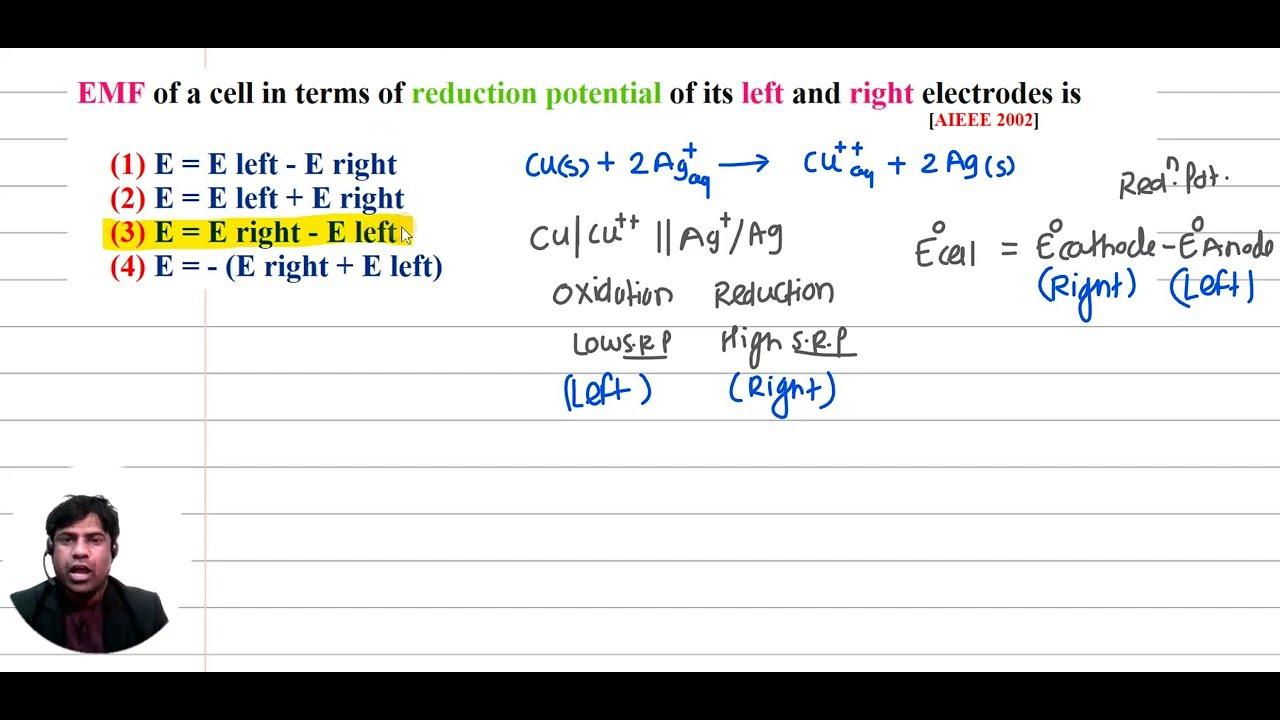 EMF of a cell in terms of reduction potential of its left and right electrodes is
[AIEEE 2002]
(1) E = E left - E right
(2) E = E left + E right
(3) E = E right - E left
(4) E = - (E right + E left)
Cu(s) + 2Ag⁺aq → Cu⁺⁺aq + 2Ag(s)
Cu|Cu⁺⁺ || Ag⁺/Ag
Oxidation Reduction
Low S.R.P High S.R.P
(Left) (Right)
Redⁿ. Pot.
E°cell = E°cathode - E°Anode
(Right) (Left)